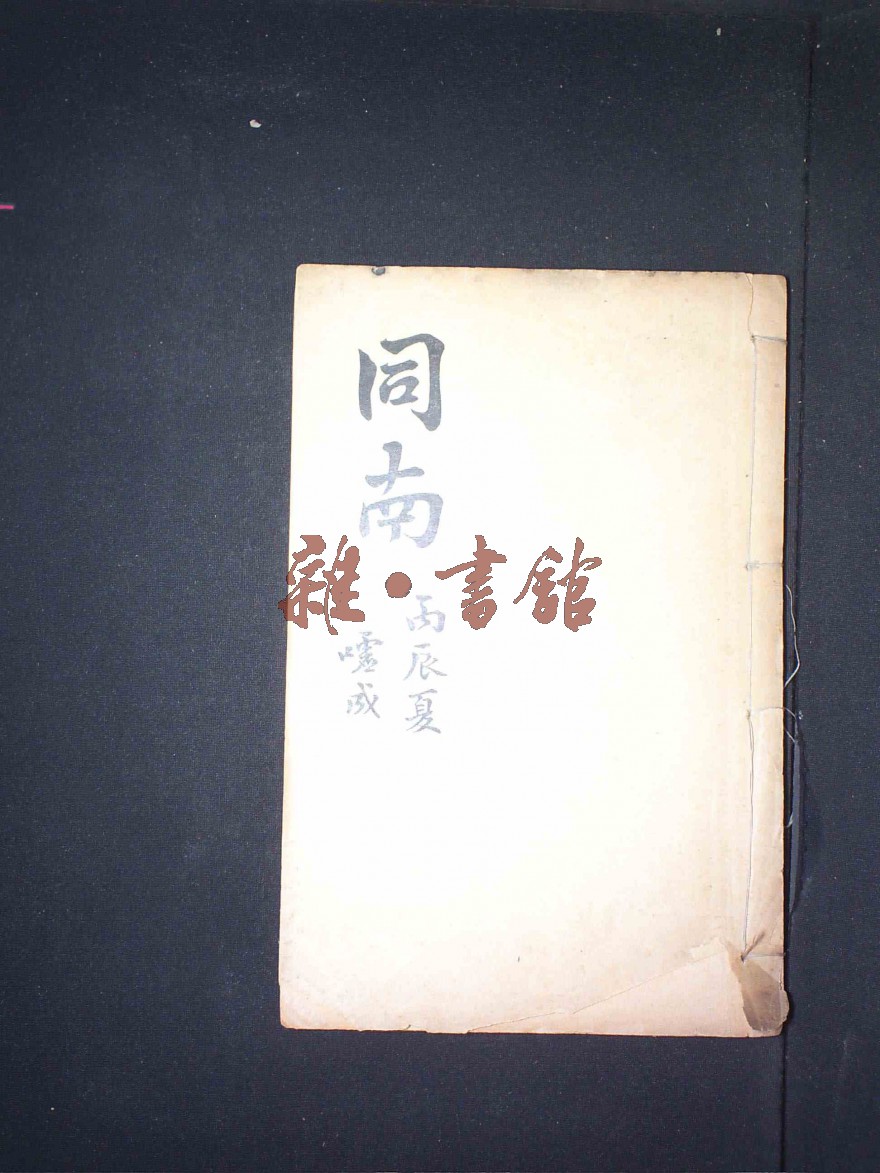 同南
丙辰夏
嘘成
雜·書館